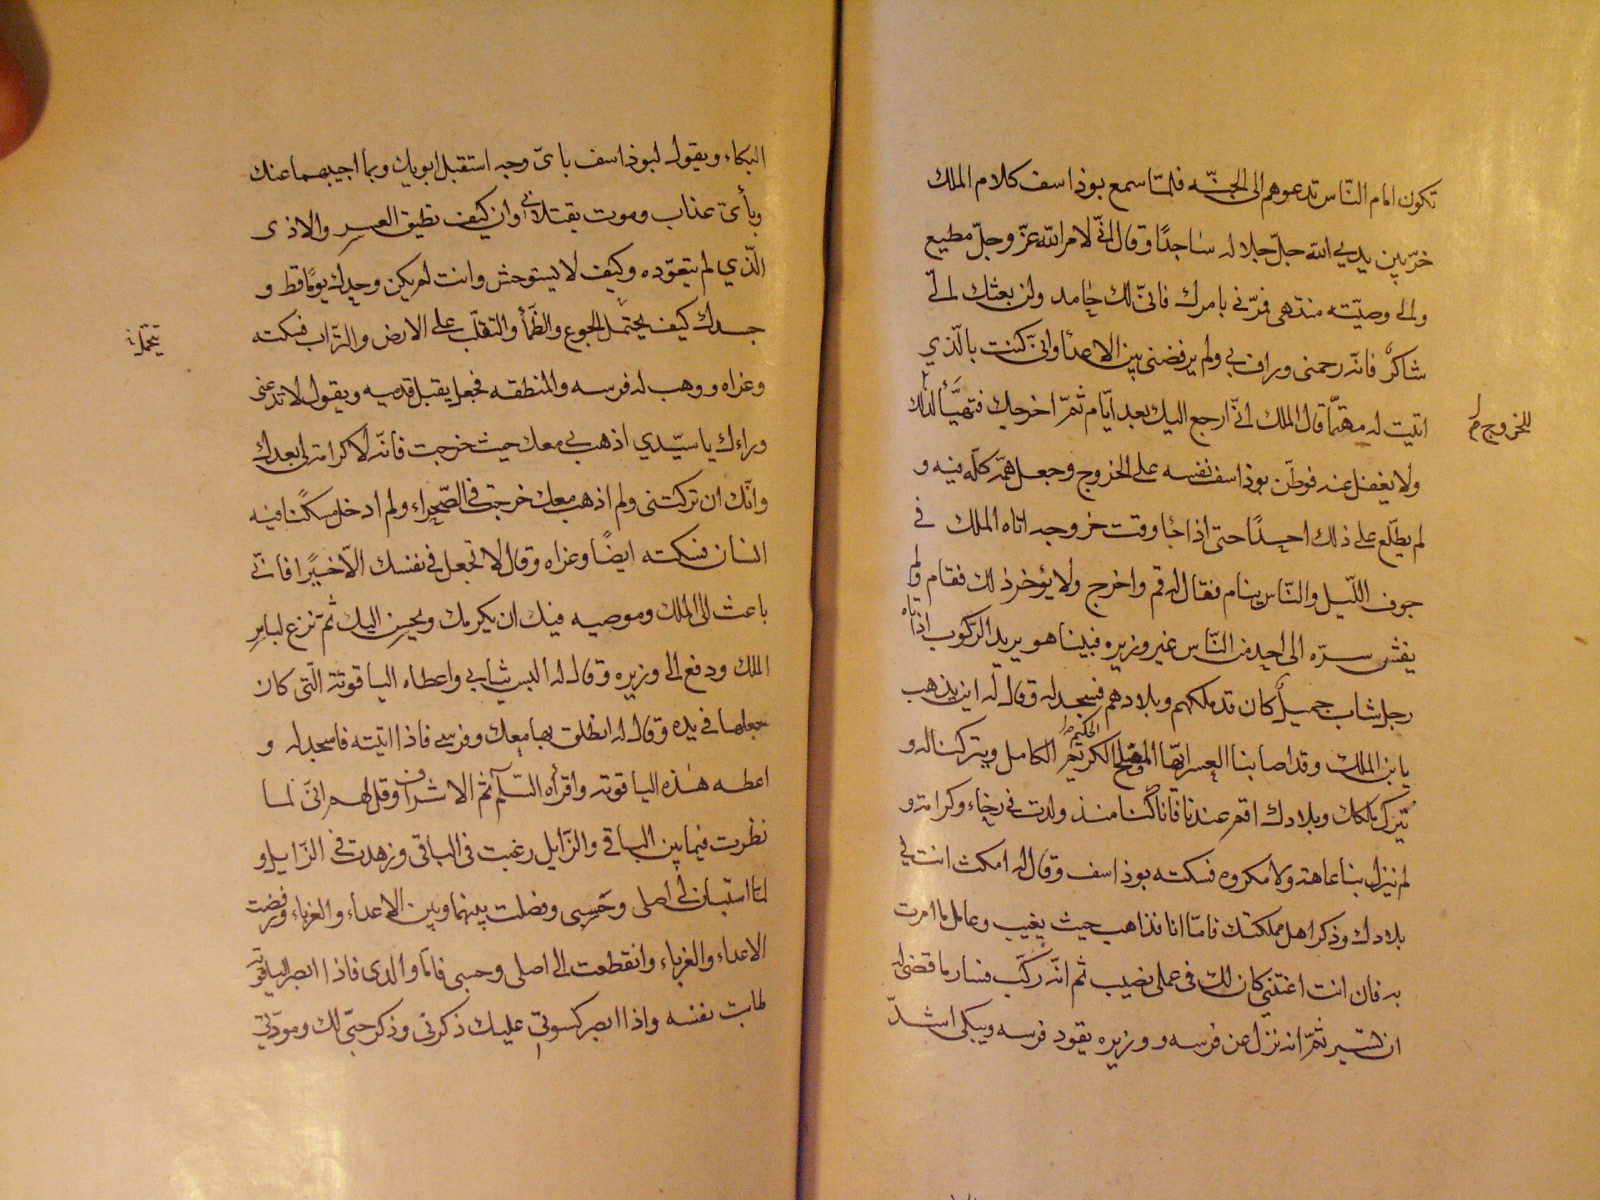 تكون امام النّاس تدعوهم الى الجنّه فلمّا سمع بوذاسف كلام الملك
خرّ بين يدي الله جلّ جلاله ساجدًا وقال انّي لامر الله عزّ وجلّ مطيع
والى وصيّته منتهى فمرني بامرك فانّي لك حامد ولمن بعثك الىّ
شاكرٌ فانّه رحمني وراف بي ولم يرفضني بين الاعداء وانّي كنت بالّذي
اتيت له مهتمّا قال الملك انّي ارجع اليك بعد ايّام ثمّ اخرجك فتهيّأ لذلك
للخروج
ولا تغفل عنه فوطّن بوذاسف نفسه على الخروج وجعل همّه كلّه فيه و
لم يطّلع على ذلك احدًا حتى اذا جاء وقت خروجه اتاه الملك في
جوف اللّيل والنّاس ينام فقال له قم واخرج ولا يؤخر ذلك فقام ولم
يفش سرّه الى احد من النّاس غير وزيره فبينا هو يريد الرّكوب اذ اتاه
رجل شاب جميل كان قد ملكهم وبلادهم فسجد له وقال له اين يذهب
يابن الملك وقد اصابنا العسر ايّها المصلح الحكيم الكامل ويتركنا له و
تترك ملكك وبلادك اقم عندنا فانّا كنّا منذ ولدت في رخاء وكرامة و
لم ينزل بنا عاهة ولا مكروه فسكته بوذاسف وقال له امكث انت في
بلادك وذكر اهل مملكتك فامّا انا فذاهب حيث يغيب وعامل ما امرت
به فان انت اعنتني كان لك في عملي نصيب ثم انّه ركب فسار ما قضى له
ان يسير ثمّ انه نزل عن فرسه و وزيره يقود فرسه ويبكي اشدّ
البكاء ويقول لبوذاسف باىّ وجه استقبل ابويك وبما اجيبهما عنك
وبأىّ عذاب وموت يقتلاني وانت كيف تطيق العسر والاذى
الّذي لم تتعوّده وكيف لا تستوحش وانت لم يكن وحدك يومًا قط و
جسدك كيف يحتمل الجوع والظّمأ والتقلّب على الارض والتّراب فسكته
يتحمّل
وعزاه ووهب له فرسه والمنطقه فجعل يقبل قدميه ويقول لا تدعني
وراءك يا سيّدي اذهب بي معك حيث خرجت فانّه لا كرامة لي بعدك
وانّك ان تركتني ولم اذهب معك خرجت في الصّحراء ولم ادخل مسكنًا فيه
انسان فسكته ايضًا وعزاه وقال لا تجعل في نفسك الّا خيرًا فانّي
باعث الى الملك وموصيه فيك ان يكرمك ويحسن اليك ثم نزع لباس
الملك ودفع الى وزيره وقال له البس ثيابي واعطاه الياقوتة الّتي كان
جعلها في يده وقال له انطلق بها معك وفرسي فاذا اتيته فاسجد له و
اعطه هذه الياقوتة واقرأه السّلم ثم الاشراف وقل لهم انّى لما
نظرت فيما بين الباقي والزّايل رغبت في الباقي وزهدت في الزّايل و
لمّا استبان لي اصلي وحسبي وفصلت بينهما وبين الاعداء والغرباء ورفضت
الاعداء والغرباء وانقطعت الى اصلي وحسبي فامّا والدي فاذا ابصر الياقوتة
طابت نفسه واذا ابصر كسوتي عليك ذكرني وذكر حبّي لك ومودّتي